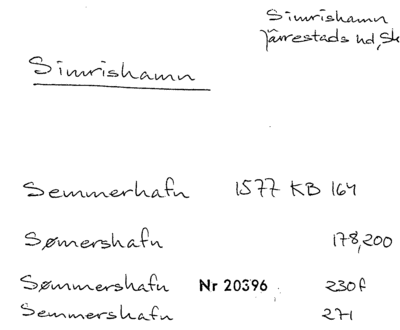 Simrishamn
Järrestads hd, Sk
Simrishamn
Semmerhafn 1577 KB 164
Sømershafn 178,200
Sømmershafn Nr 20396 230f
Semmershafn 271